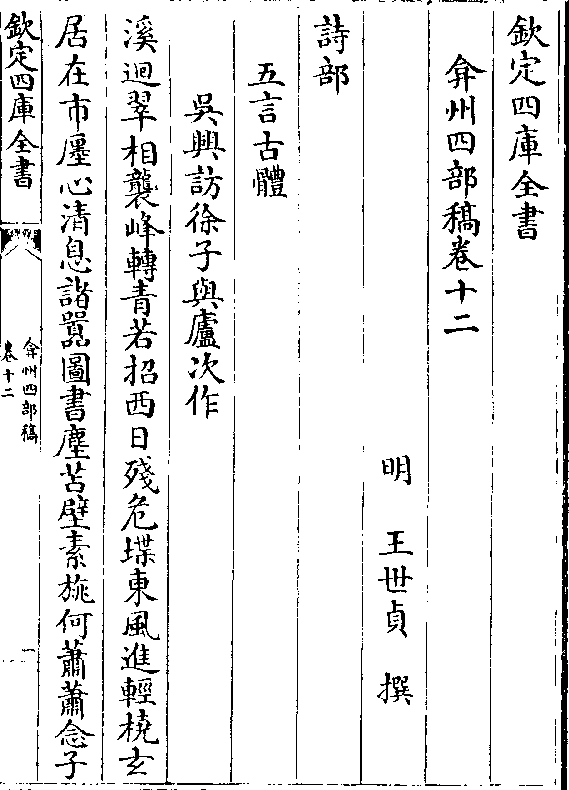 欽定四庫全書
弇州四部稿卷十二
明 王世貞 撰
詩部
五言古體
吳興訪徐子與廬次作
溪迴翠相襲峰轉青若招西日殘危堞東風進輕橈玄
居在市廛心清息諧囂圖書塵苫壁素旐何蕭蕭念子
欽定四庫全書
弇州四部稿
卷十二
一